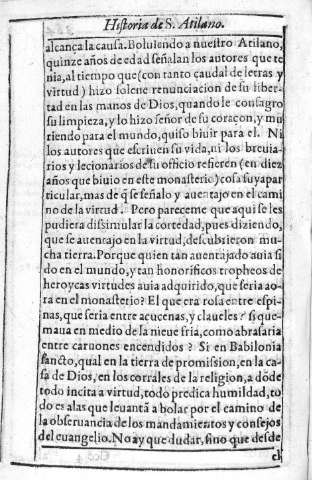 Historia de S. Atilano.
alcança la causa. Boluiendo a nuestro Atilano,
quinze años de edad señalan los autores que te
nia, al tiempo que (con tanto caudal de letras y
virtud) hizo solene renunciacion de su liber-
tad en las manos de Dios, quando le consagro
su limpieza, y lo hizo señor de su coraçon, y mu
riendo para el mundo, quiso biuir para el. Ni
los autores que escriuen su vida, ni los breuia-
rios y lecionarios de su officio refieren (en diez
años que biuio en este monasterio) cosa suya par
ticular, mas de q̃ se señalo y auentajo en el cami
no de la virtud. Pero pareceme que aqui se les
pudiera dissimular la cortedad, pues diziendo,
que se auentajo en la virtud, descubrieron mu-
cha tierra. Porque quien tan auentajado auia si
do en el mundo, y tan honorificos tropheos de
heroycas virtudes auia adquirido, que seria ao-
ra en el monasterio? El que era rosa entre espi-
nas, que seria entre açucenas, y claueles? si que-
maua en medio de la nieue fria, como abrasaria
entre caruones encendidos? Si en Babilonia
sancto, qual en la tierra de promission, en la ca-
sa de Dios, en los corrales de la religion, a dõde
todo incita a virtud, todo predica humildad, to
do es alas que leuantã a bolar por el camino de
la obseruancia de los mandamientos y consejos
del euangelio. No ay que dudar, sino que desde
el